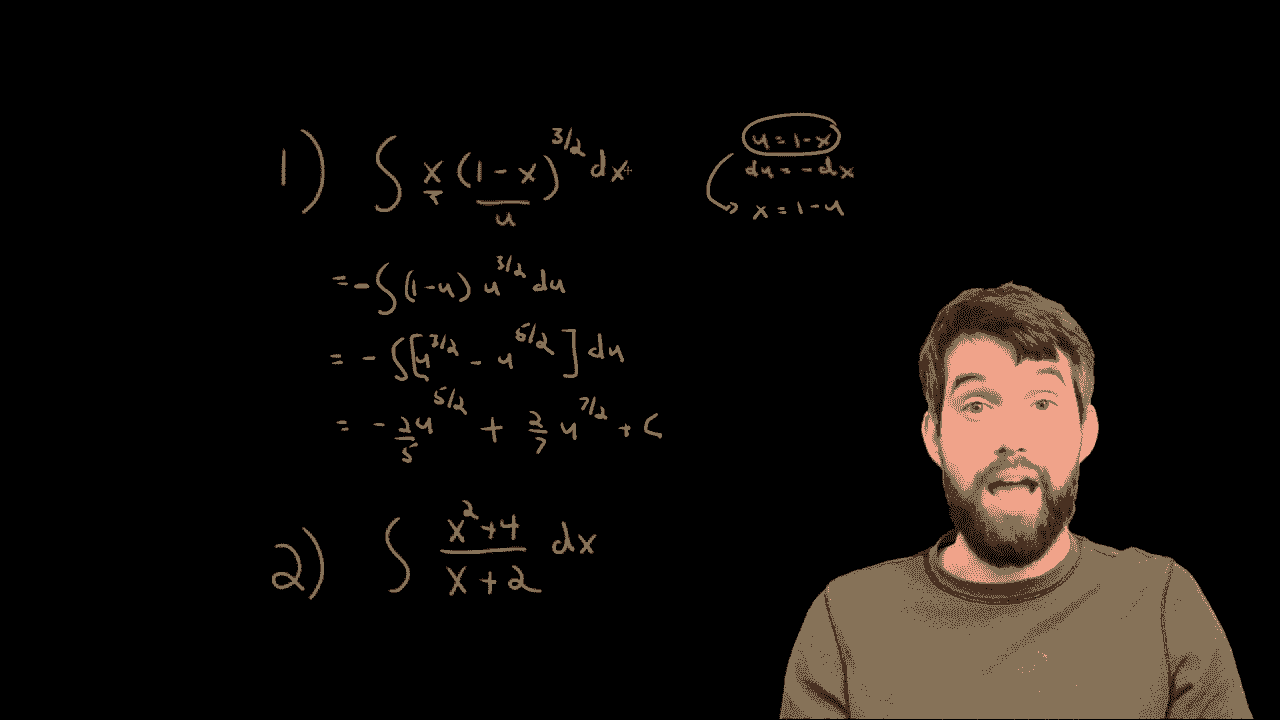 1) ∫ x (1 - x)^{3/2} dx
u
u = 1 - x
du = - dx
x = 1 - u
= - ∫ (1 - u) u^{3/2} du
= - ∫ [u^{3/2} - u^{5/2}] du
= - 2/5 u^{5/2} + 2/7 u^{7/2} + C
2) ∫ (x^2 + 4)/(x + 2) dx